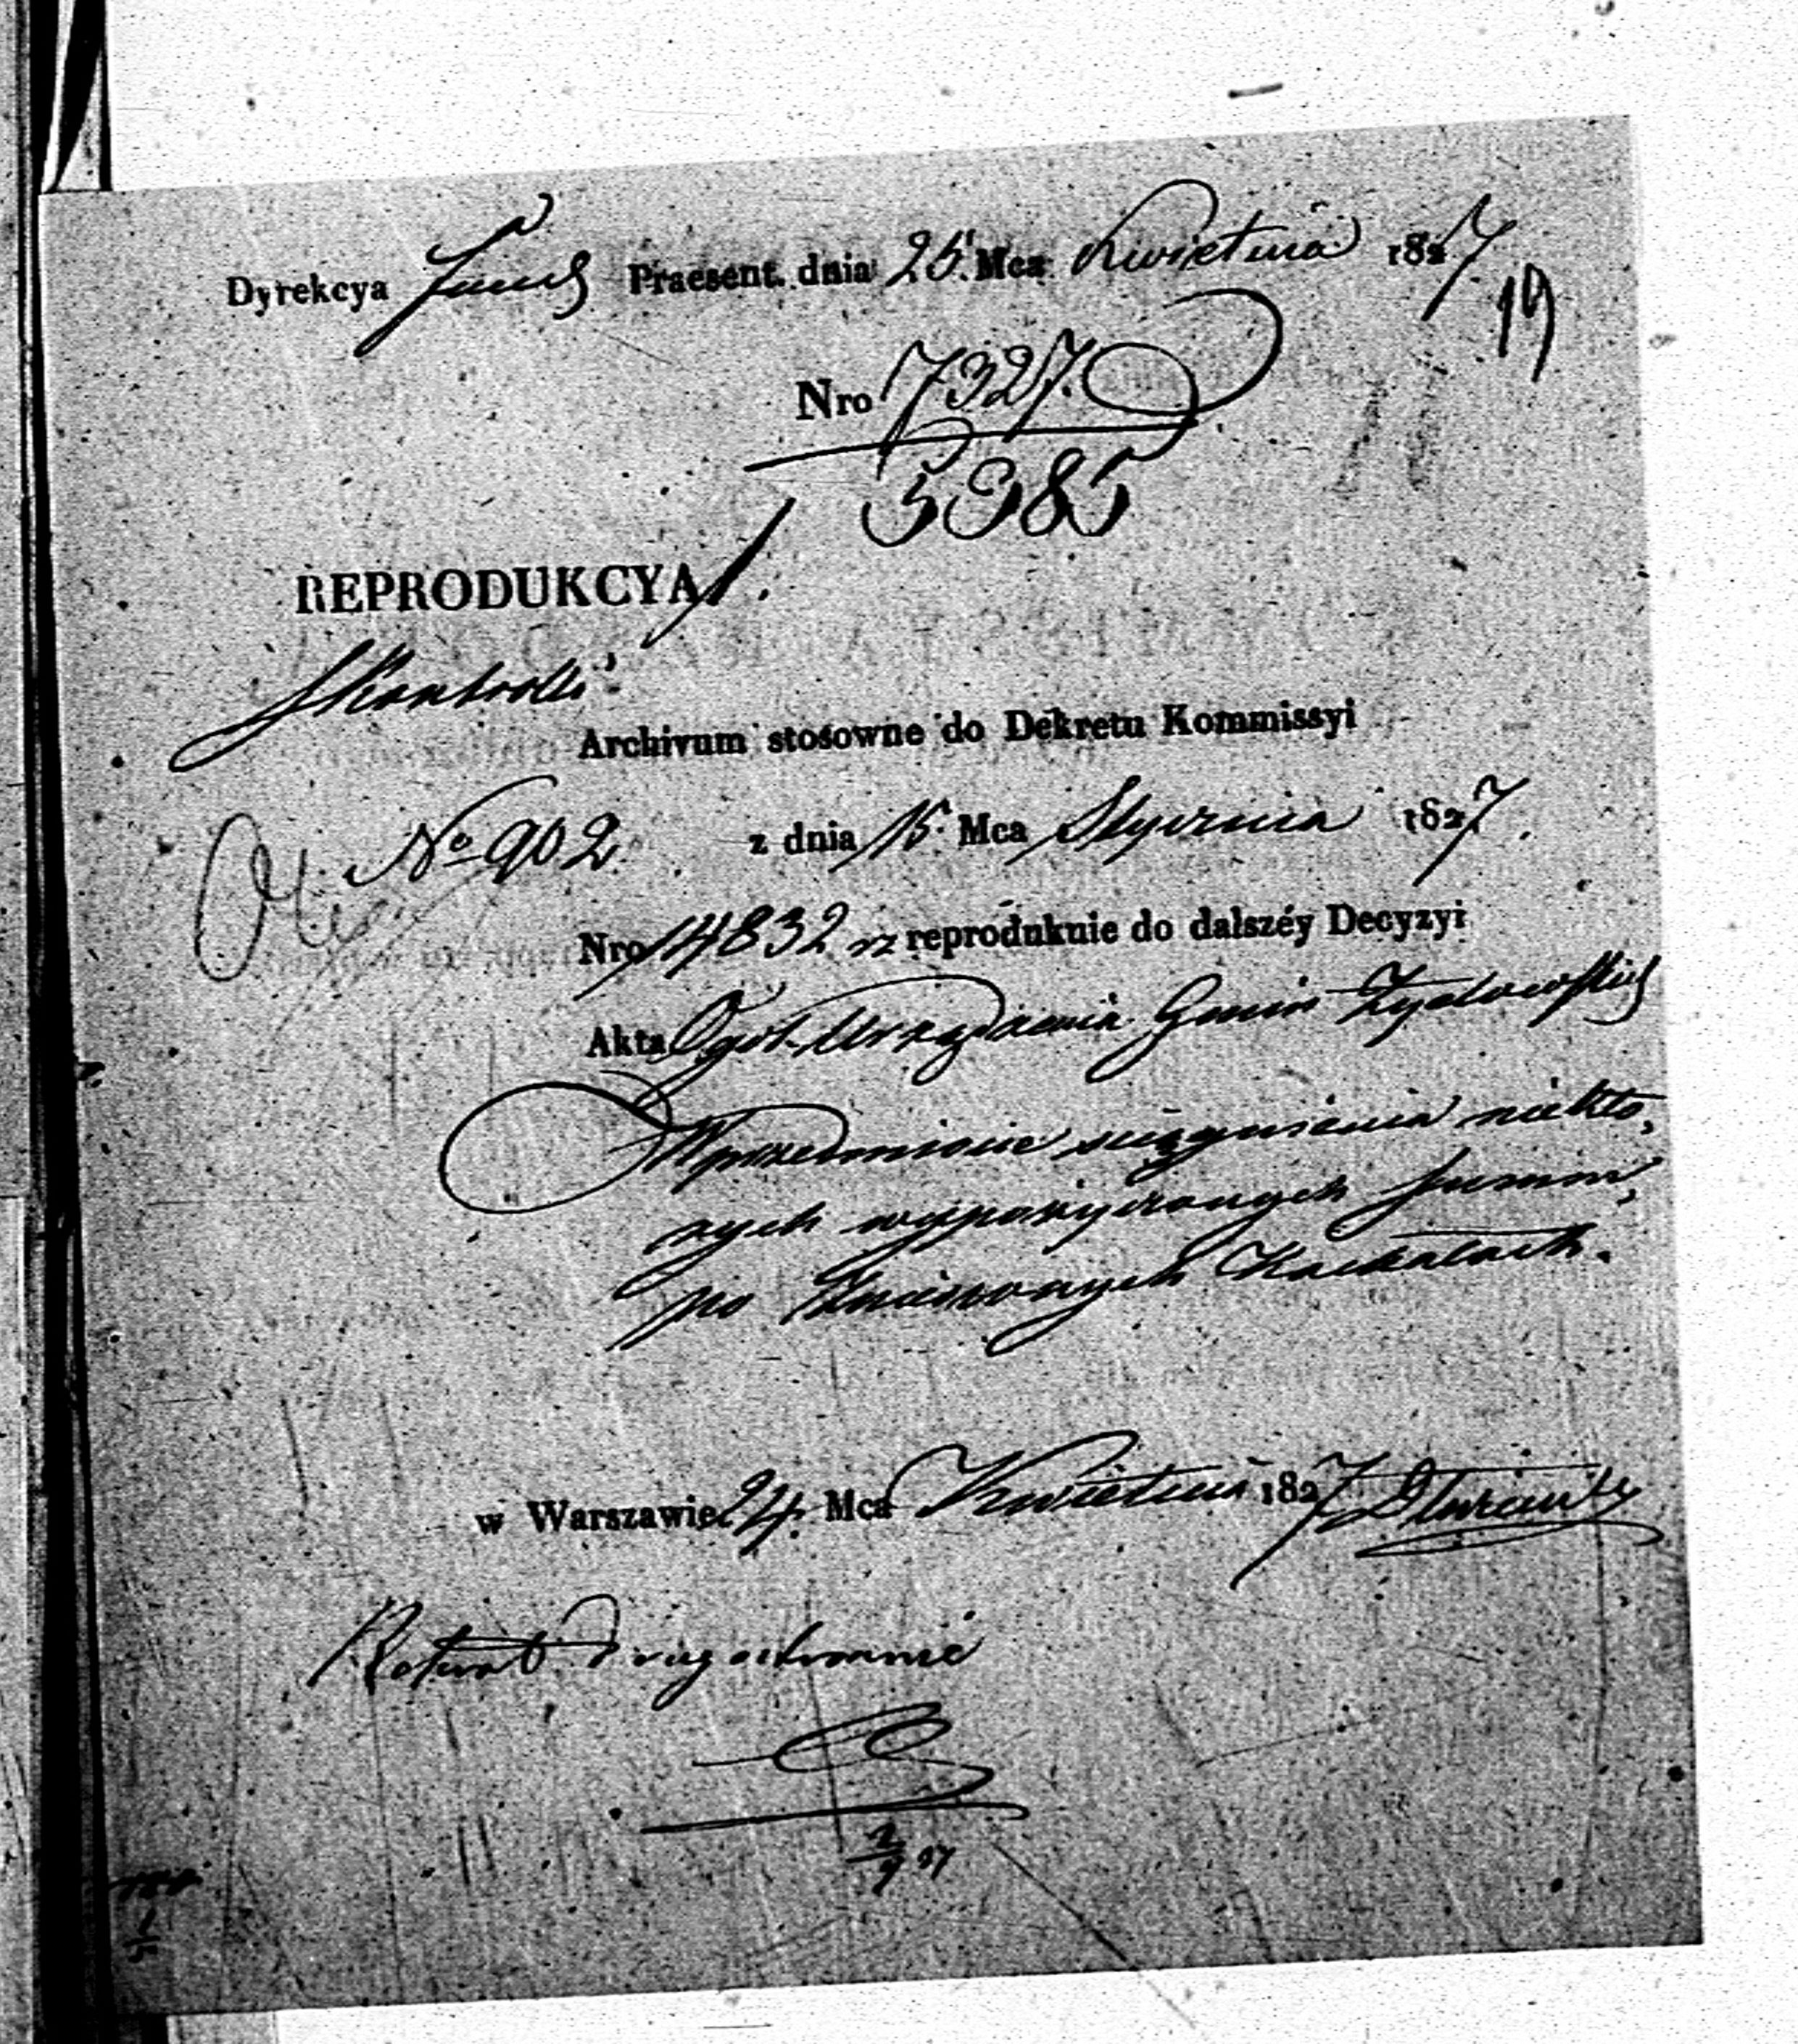 Dyrekcya Praesent. dnia 25. Mca Kwietnia 1827
19
Nro 7327.
5985
REPRODUKCYA
Archivum stosowne do Dekretu Kommissyi
No 902 z dnia 15. Mca Stycznia 1827.
Nro 14832 reprodukuie do dalszéy Decyzyi
Akta Ogól. Urządzenia Gmin Żydowskich
W przedmiocie ściągnienia niektó,
rych wypożyczonych summ,
po Zniesionych Kachałach.
w Warszawie 24. Mca Kwietnia 1827